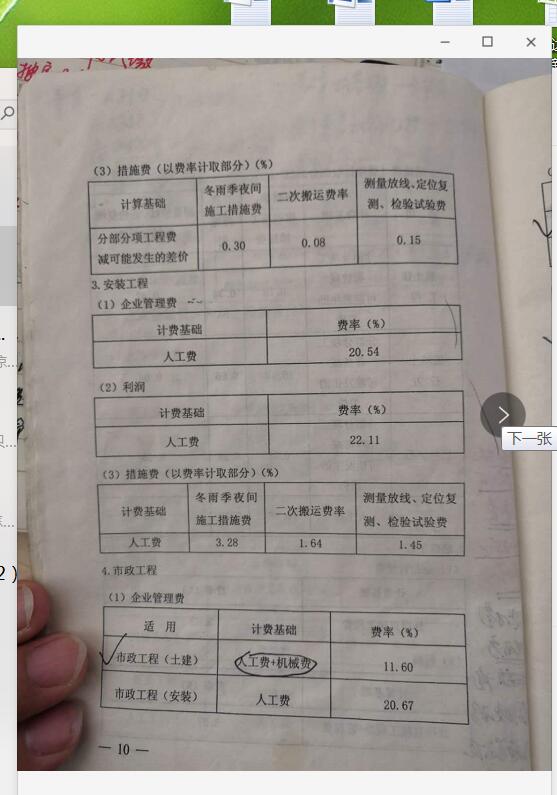 (3) 措施费(以费率计取部分)(%)
计算基础 冬雨季夜间施工措施费 二次搬运费率 测量放线、定位复测、检验试验费
分部分项工程费减可能发生的差价 0.30 0.08 0.15
3.安装工程
(1)企业管理费
计费基础 费率(%)
人工费 20.54
(2)利润
计费基础 费率(%)
人工费 22.11
下一张
(3)措施费(以费率计取部分)(%)
计费基础 冬雨季夜间施工措施费 二次搬运费率 测量放线、定位复测、检验试验费
人工费 3.28 1.64 1.45
4.市政工程
(1)企业管理费
适 用 计费基础 费率(%)
市政工程(土建) 人工费+机械费 11.60
市政工程(安装) 人工费 20.67
— 10 —